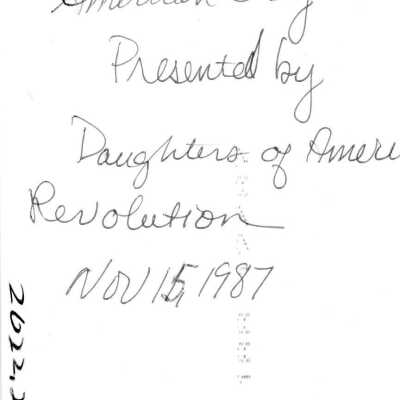 American
Presented by
Daughters of Ameri
Revolution
Nov 15, 1987
2622.